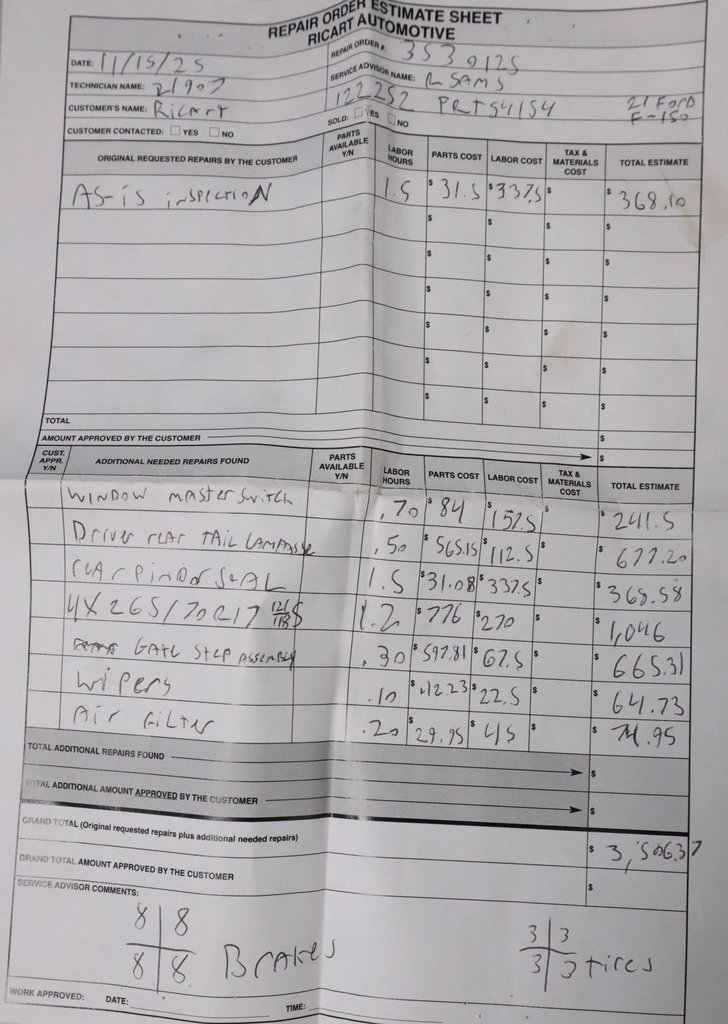 REPAIR ORDER ESTIMATE SHEET
RICART AUTOMOTIVE
DATE: 11/15/25 REPAIR ORDER #: 3530125
TECHNICIAN NAME: 21907 SERVICE ADVISOR NAME: R SAMS
CUSTOMER'S NAME: Ricart 122252 PRTS4154 21 Ford F-150
CUSTOMER CONTACTED: YES NO SOLD: YES NO
ORIGINAL REQUESTED REPAIRS BY THE CUSTOMER PARTS AVAILABLE Y/N LABOR HOURS PARTS COST LABOR COST TAX & MATERIALS COST TOTAL ESTIMATE
AS-iS inSPECTION 1.5 $ 31.5 $ 337.5 $ $ 368.10
$ $ $ $
$ $ $ $
$ $ $ $
$ $ $ $
$ $ $ $
$ $ $ $
TOTAL $
AMOUNT APPROVED BY THE CUSTOMER $
CUST. APPR. Y/N ADDITIONAL NEEDED REPAIRS FOUND PARTS AVAILABLE Y/N LABOR HOURS PARTS COST LABOR COST TAX & MATERIALS COST TOTAL ESTIMATE
WINDOW MASTER SWITCH .70 $ 84 $ 157.5 $ $ 241.5
Driver rear TAIL LAMP .50 $ 565.15 $ 112.5 $ $ 677.20
rEAR SEAL 1.5 $ 31.08 $ 337.5 $ $ 368.58
4X 265/70R17 121/118 S 1.2 $ 776 $ 270 $ $ 1,046
GATE STEP ASSEMBLY .30 $ 597.81 $ 67.5 $ $ 665.31
Wipers .10 $ 42.23 $ 22.5 $ $ 64.73
Air Filter .20 $ 29.95 $ 45 $ $ 74.95
TOTAL ADDITIONAL REPAIRS FOUND $
TOTAL ADDITIONAL AMOUNT APPROVED BY THE CUSTOMER $
GRAND TOTAL (Original requested repairs plus additional needed repairs) $ 3,506.37
GRAND TOTAL AMOUNT APPROVED BY THE CUSTOMER $
SERVICE ADVISOR COMMENTS:
8 8 3 3
8 8 Brakes 3 3 tires
WORK APPROVED: DATE: TIME: